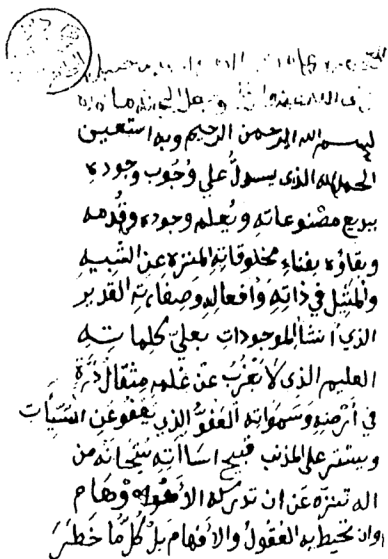 بسم الله الرحمن الرحيم وبه استعين
الحمد لله الذي يستدل علي وجوب وجوده
ببديع مصنوعاته ويعلم وجوده وقدمه
وبقاؤه بفناء مخلوقاته المنزه عن الشبيه
والمثيل في ذاته وافعاله وصفاته القدير
الذي انشا الموجودات بعلي كلماته
العليم الذي لا يعزب عن علمه مثقال ذرة
في ارضه وسمواته العفو الذي يعفو عن السيئات
ويستر علي المذنب قبيح اساآته سبحانه من
اله تنزه عن ان تدركه الاوهام
او ان تحيط به العقول والافهام بل كل ما خطر